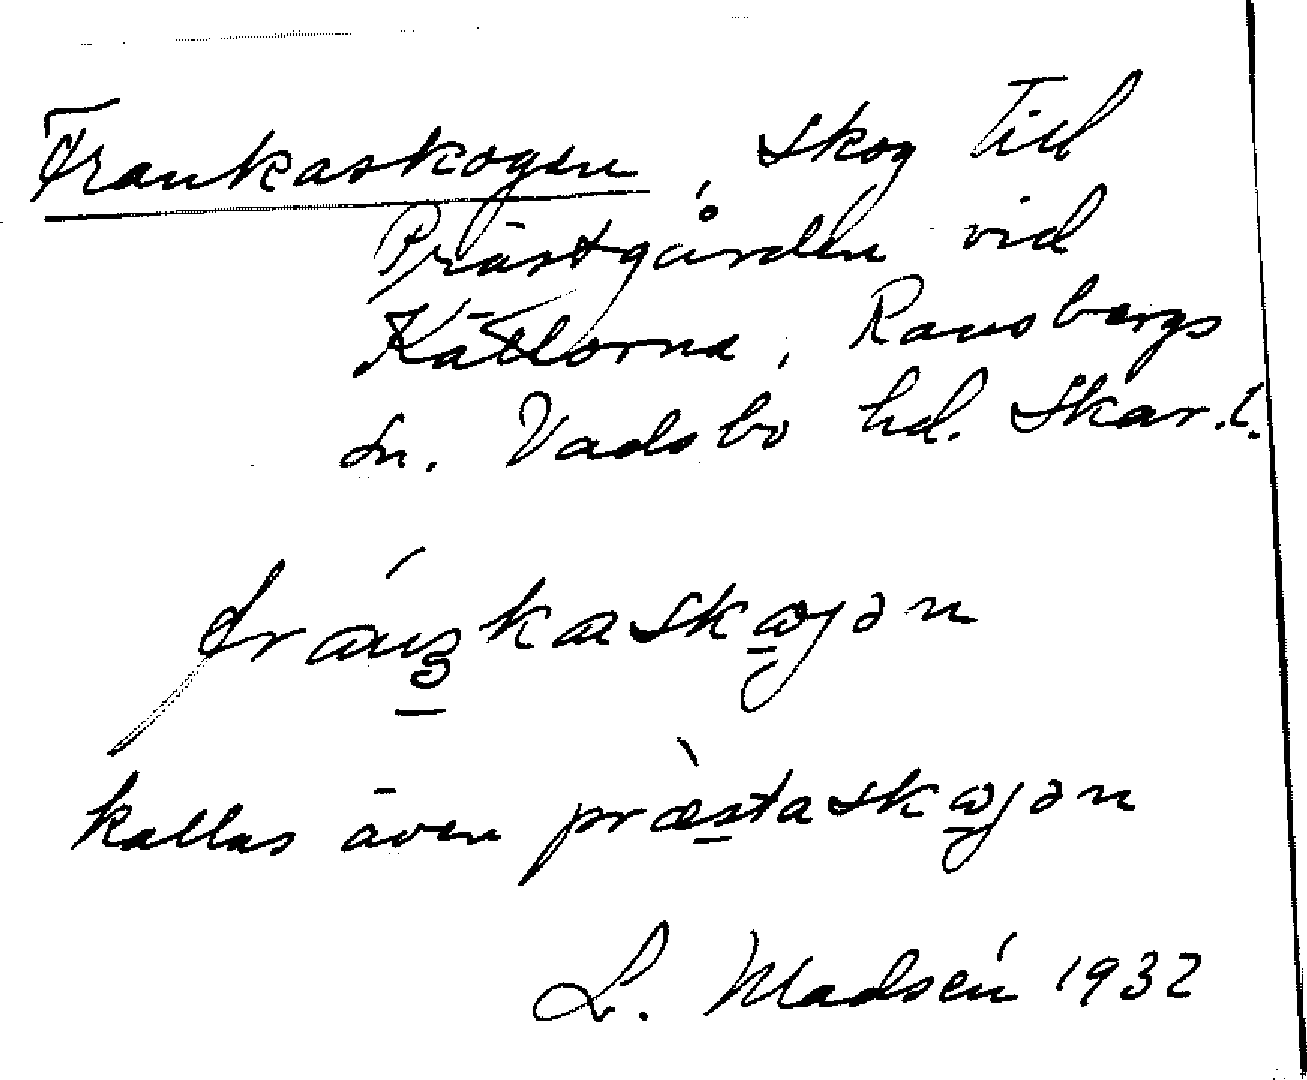 Frankaskogen, skog till
Prästgården vid
Källorna, Ransbergs
sn. Vadsbo hd. Skar. l.
fráŋkaskωjən
kallas även præ̀staskωjən
L. Madsén 1932